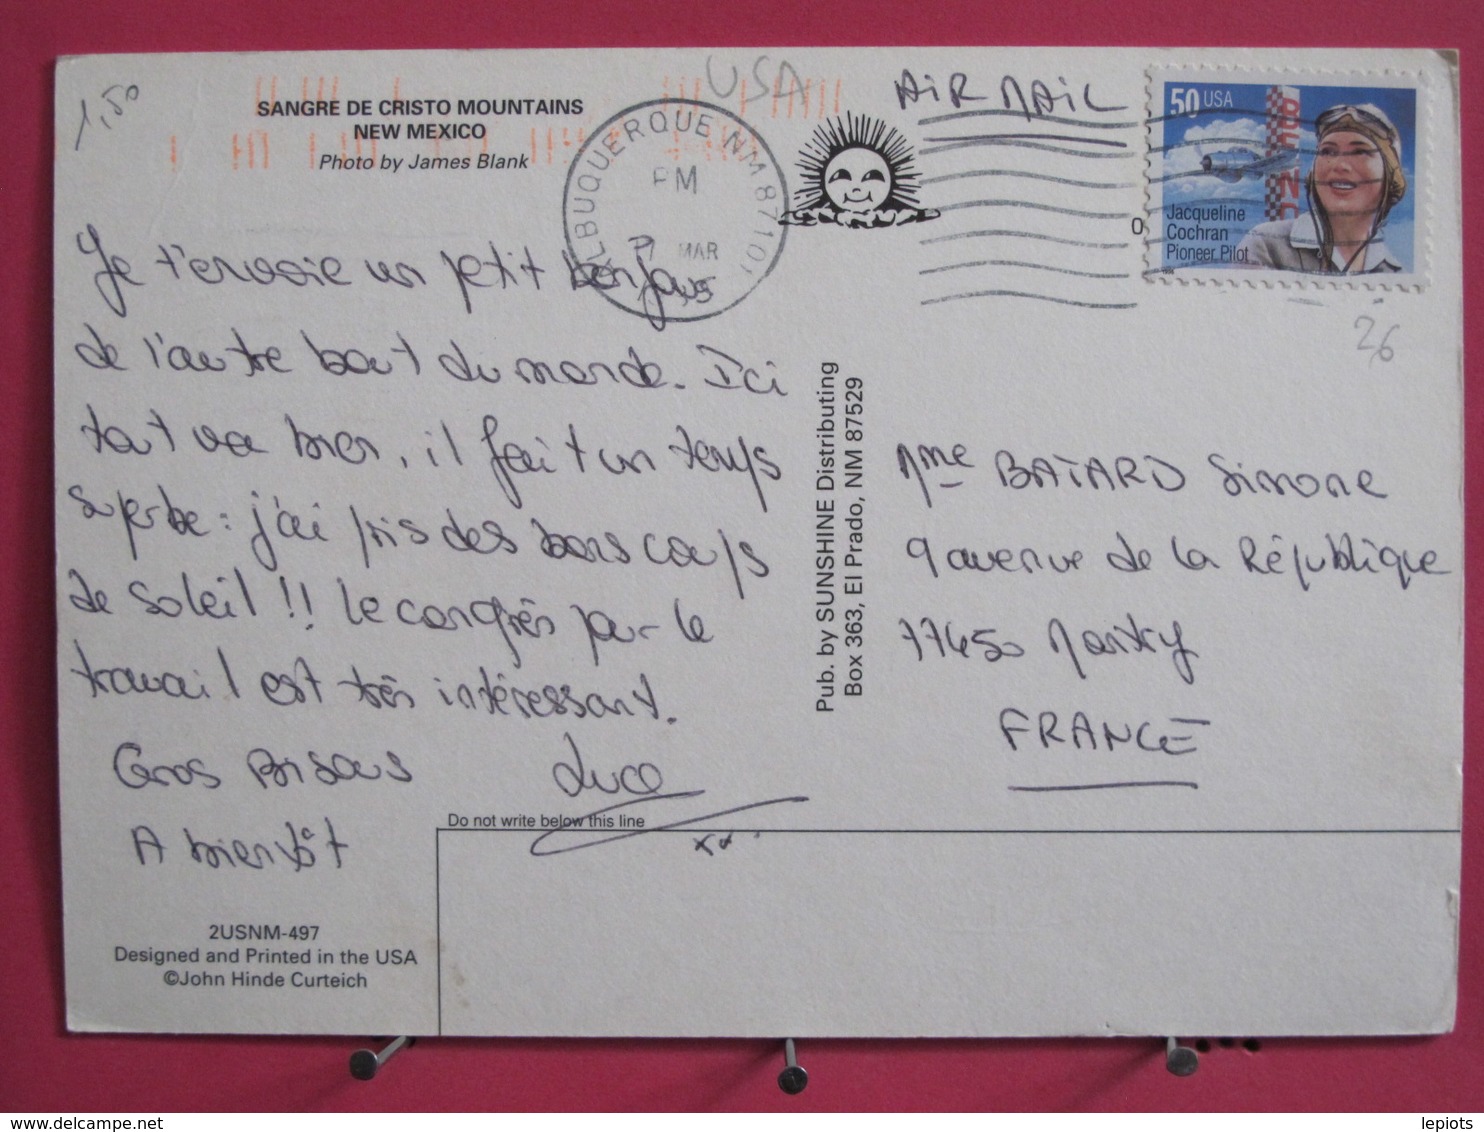 1,50
SANGRE DE CRISTO MOUNTAINS
NEW MEXICO
Photo by James Blank
USA
AIR MAIL
ALBUQUERQUE NM 87101
PM
MAR
50 USA
Jacqueline
Cochran
Pioneer Pilot
26
Je t'envoie un petit bonjour
de l'autre bout du monde. Ici
tout va bien, il fait un temps
superbe : j'ai pris des bons coups
de soleil !! Le congrès pour le
travail est très intéressant.
Gros Bisous
Luce
A bientôt
Pub. by SUNSHINE Distributing
Box 363, El Prado, NM 87529
Mme BATARD Simone
9 avenue de la République
77450 Montry
FRANCE
Do not write below this line
2USNM-497
Designed and Printed in the USA
©John Hinde Curteich
lepiots